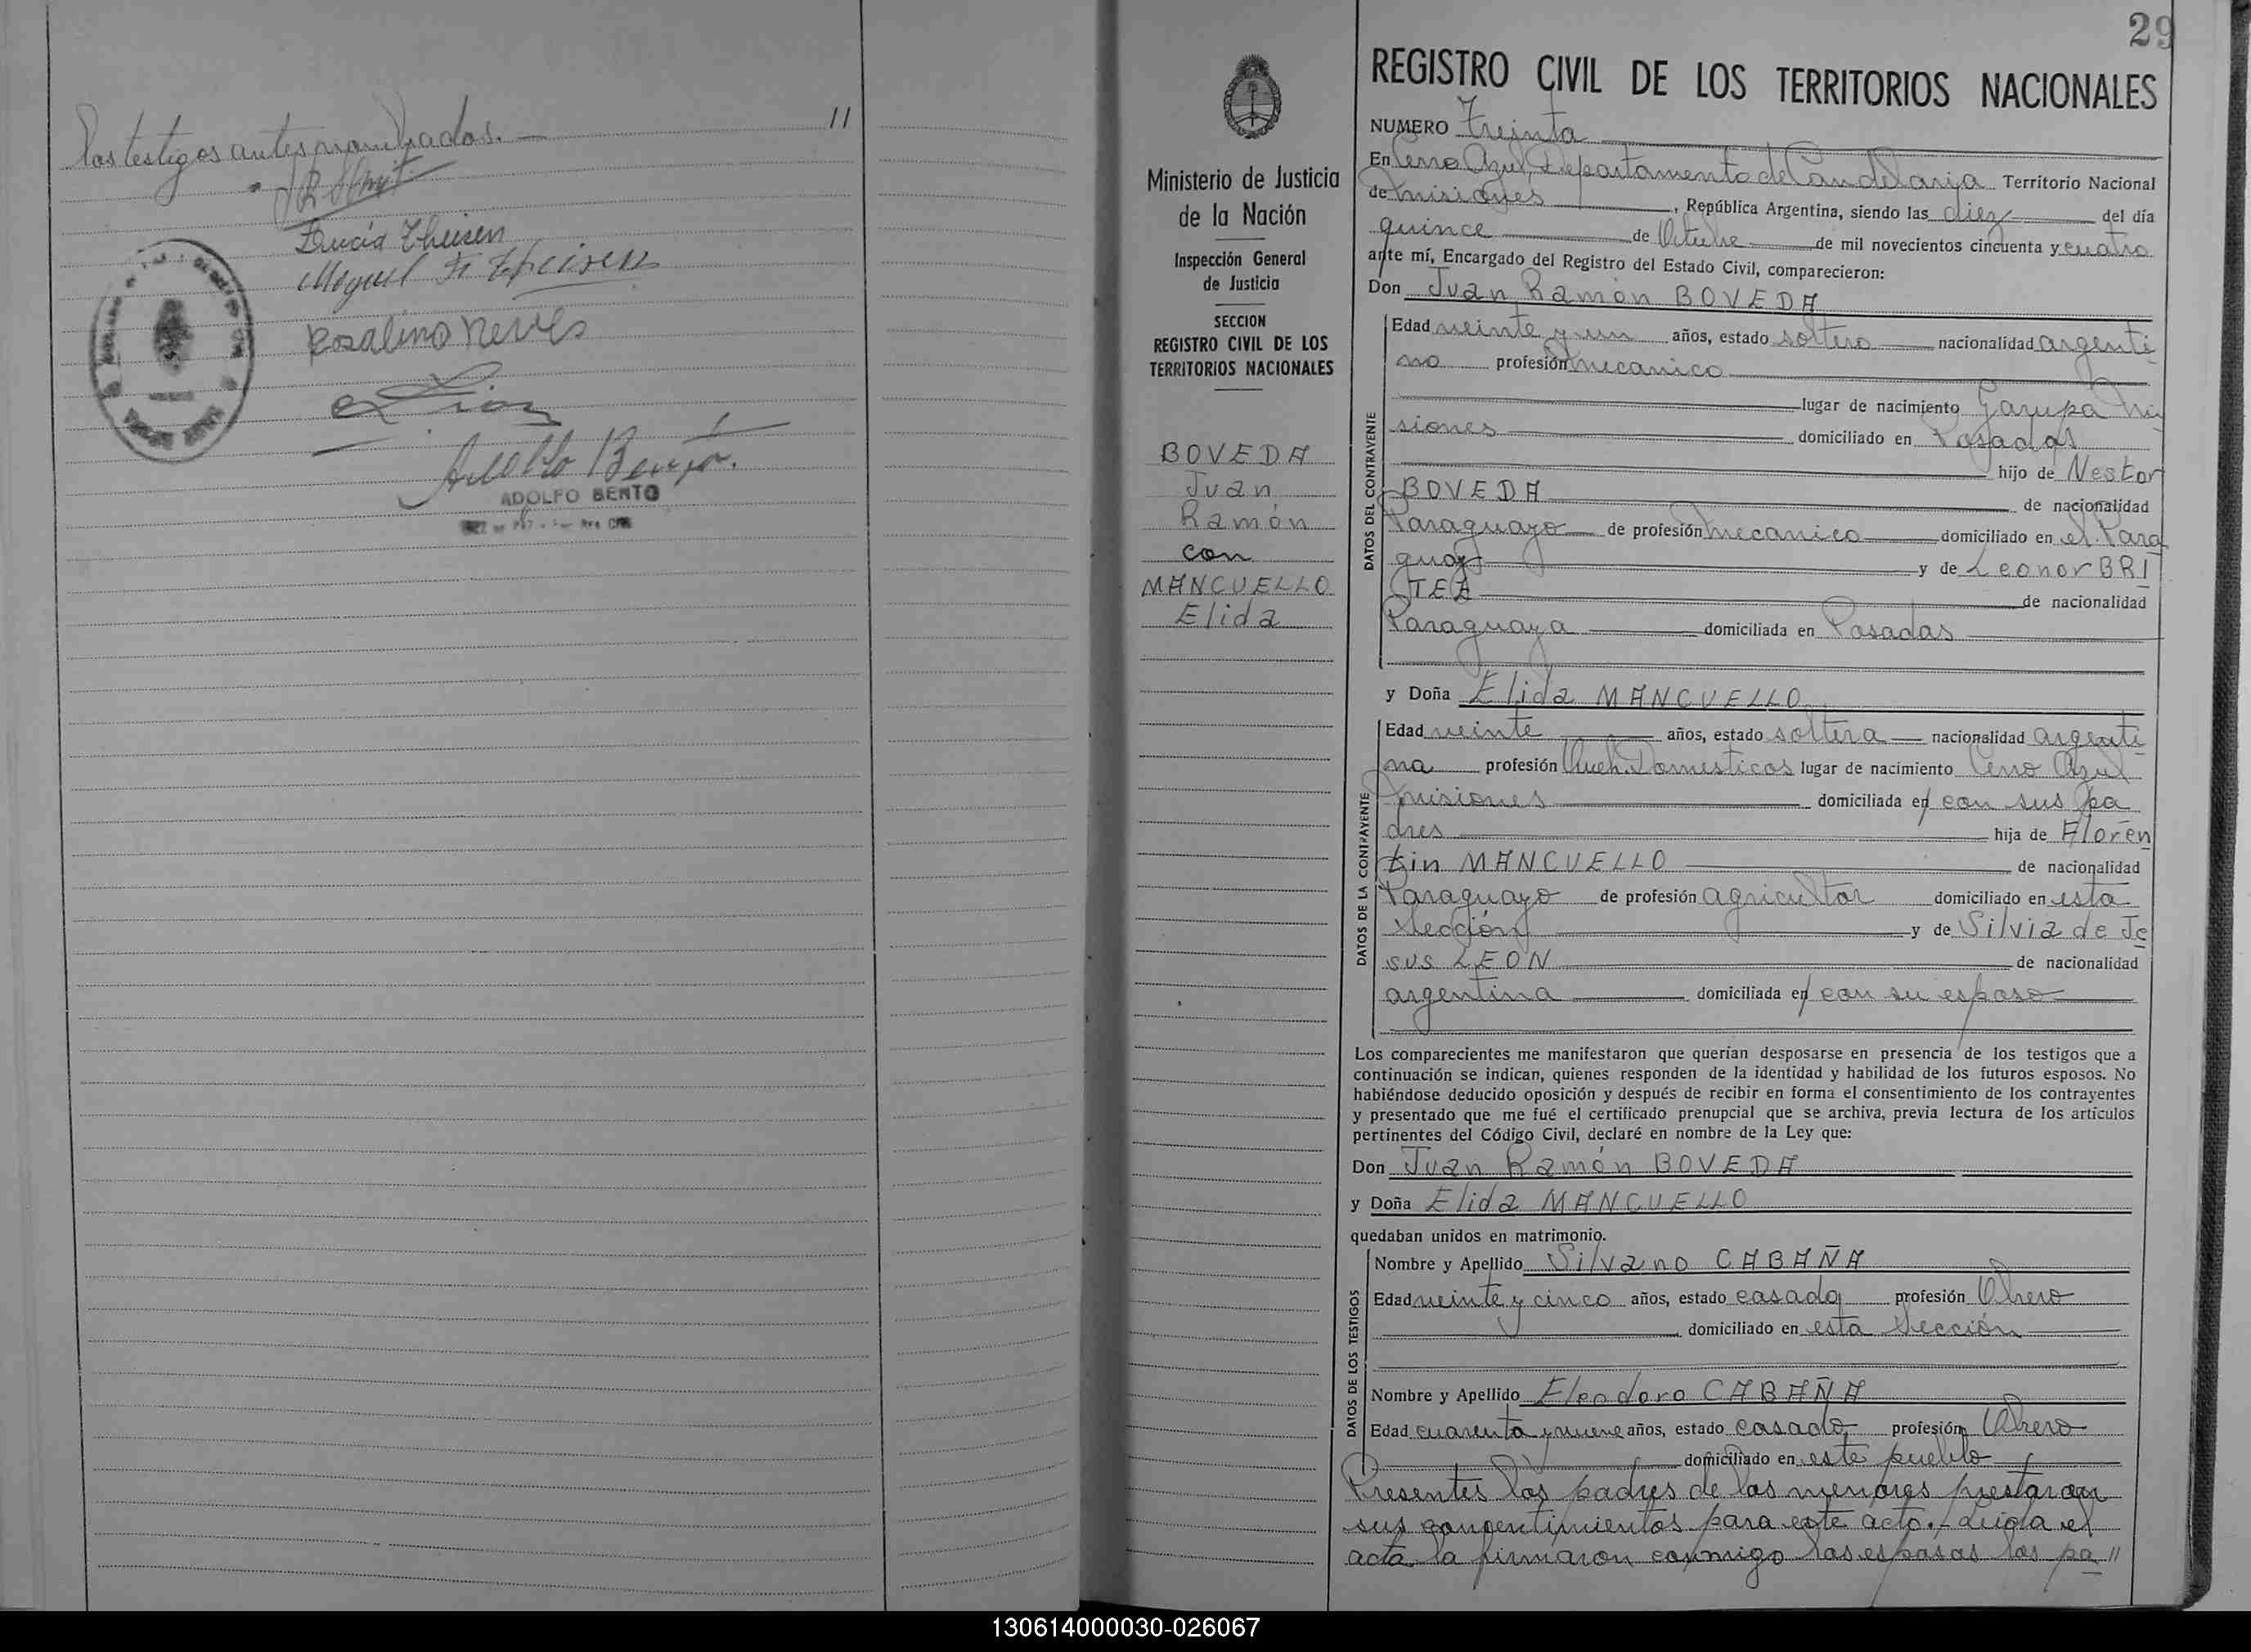 los testigos antes nombrados.—
Lucía Theisen
Miguel F. Theisen
Rosalino Neves
Adolfo Bento.
ADOLFO BENTO
29
Ministerio de Justicia
de la Nación
Inspección General
de Justicia
SECCION
REGISTRO CIVIL DE LOS
TERRITORIOS NACIONALES
BOVEDA
Juan
Ramón
con
MANCUELLO
Elida
REGISTRO CIVIL DE LOS TERRITORIOS NACIONALES
NUMERO Treinta
En Cerro Azul, Departamento de Candelaria Territorio Nacional
de Misiones, República Argentina, siendo las diez del día
quince de Octubre de mil novecientos cincuenta y cuatro
ante mí, Encargado del Registro del Estado Civil, comparecieron:
Don Juan Ramón BOVEDA
DATOS DEL CONTRAYENTE
Edad veinte y un años, estado soltero nacionalidad argenti
no profesión mecanico
lugar de nacimiento Garupa Mi
siones domiciliado en Posadas
hijo de Nestor
BOVEDA de nacionalidad
Paraguayo de profesión mecanico domiciliado en el Para
guay y de Leonor BRI
TEZ de nacionalidad
Paraguaya domiciliada en Posadas
y Doña Elida MANCUELLO
DATOS DE LA CONTRAYENTE
Edad veinte años, estado soltera nacionalidad argenti
na profesión Queh. Domesticos lugar de nacimiento Cerro Azul
Misiones domiciliada en con sus pa
dres hija de Floren
tin MANCUELLO de nacionalidad
Paraguayo de profesión agricultor domiciliado en esta
Sección y de Silvia de Je
sus LEON de nacionalidad
argentina domiciliada en con su esposo
Los comparecientes me manifestaron que querían desposarse en presencia de los testigos que a
continuación se indican, quienes responden de la identidad y habilidad de los futuros esposos. No
habiéndose deducido oposición y después de recibir en forma el consentimiento de los contrayentes
y presentado que me fué el certificado prenupcial que se archiva, previa lectura de los artículos
pertinentes del Código Civil, declaré en nombre de la Ley que:
Don Juan Ramón BOVEDA
y Doña Elida MANCUELLO
quedaban unidos en matrimonio.
DATOS DE LOS TESTIGOS
Nombre y Apellido Silvano CABAÑA
Edad veinte y cinco años, estado casado profesión Obrero
domiciliado en esta Sección
Nombre y Apellido Eleodoro CABAÑA
Edad cuarenta y nueve años, estado casado profesión Obrero
domiciliado en este pueblo
Presentes los padres de los menores prestaron
sus consentimientos para este acto.- Leida el
acta la firmaron conmigo los esposos los pa //
130614000030-026067